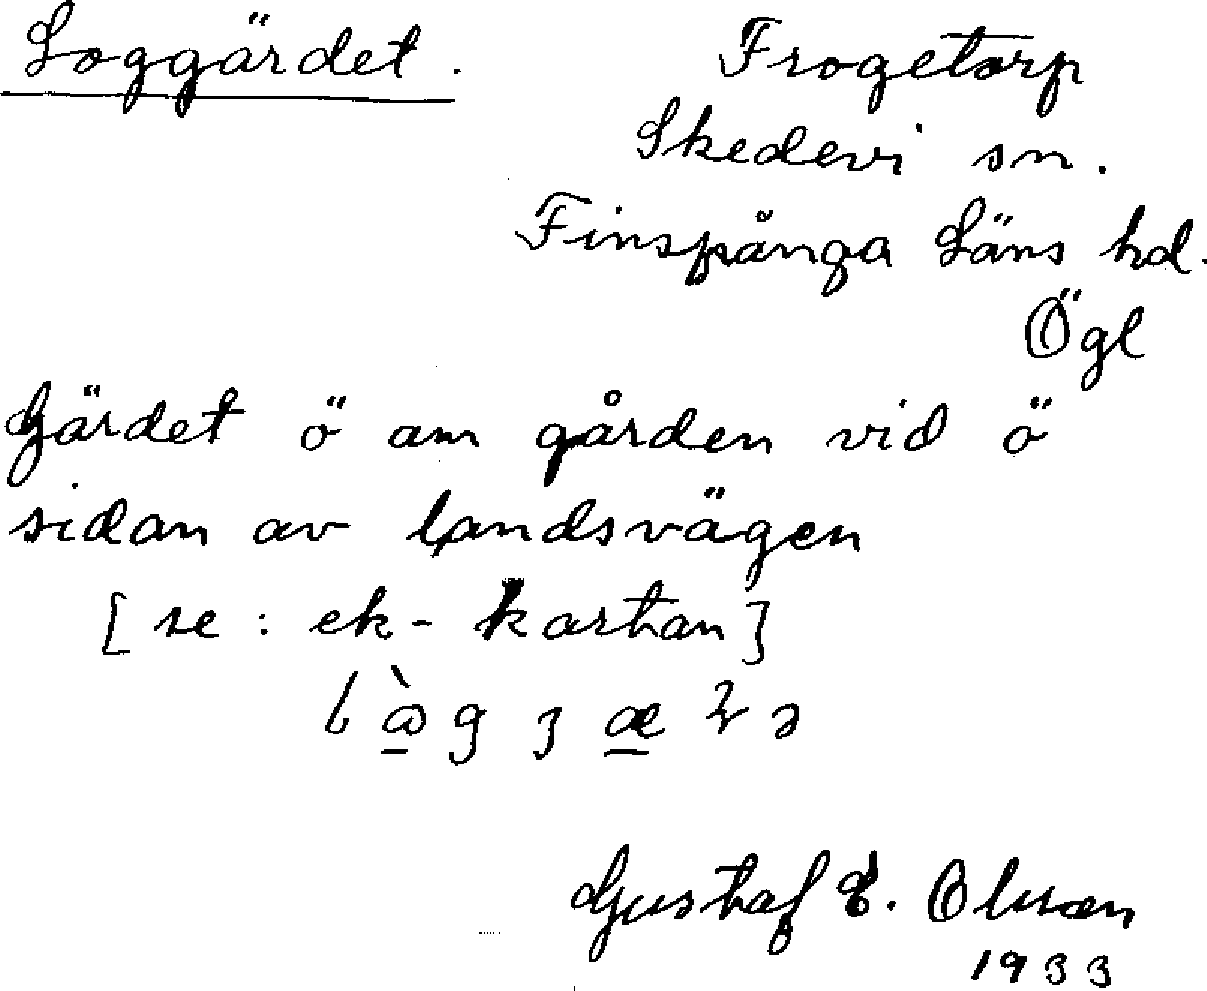 Loggärdet. Frogetorp
Skedevi sn.
Finspånga Läns hd.
Ögl
Gärdet ö om gården vid ö
sidan av landsvägen
[se: ek-kartan]
Gustaf E. Olsson
1933